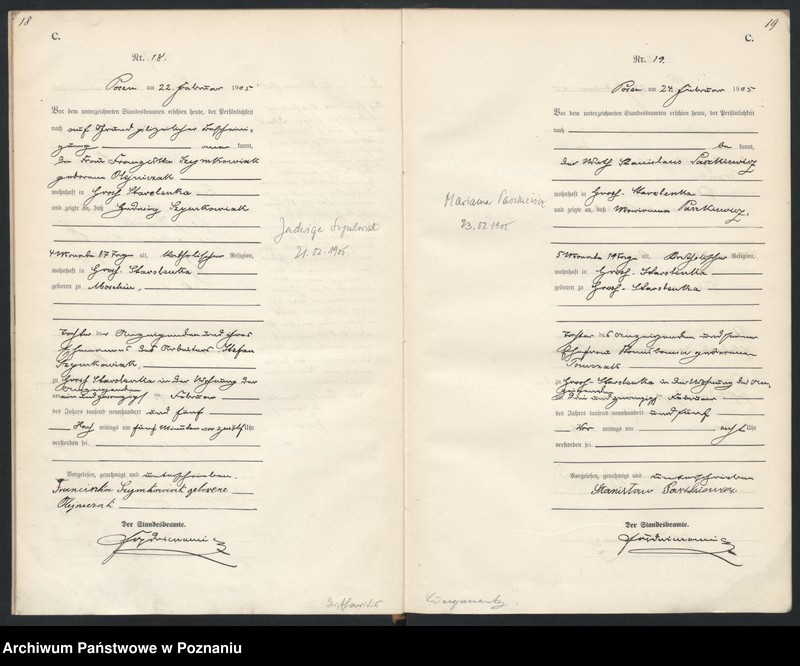 18
C.
Nr. 18.
Posen am 22. Februar 1905
Vor dem unterzeichneten Standesbeamten erschien heute, der Persönlichkeit
nach auf Grund polizeilicher Bescheini-
gung kannt,
die Frau Franziska Szymkowiak
geborene Olejniczak
wohnhaft in Groß Starolenka
und zeigte an, daß Hedwig Szymkowiak
4 Monate 07 Tage alt, katholischer Religion,
wohnhaft in Groß Starolenka
geboren zu Moschin,
Tochter der Anzeigenden und ihres
Ehemannes des Arbeiters Stefan
Szymkowiak,
zu Groß Starolenka in der Wohnung der
Anzeigenden
am ein und zwanzigsten Februar
des Jahres tausend neunhundert und fünf
Nach mittags um fünf Minuten vor zwölf Uhr
verstorben sei.
Vorgelesen, genehmigt und unterschrieben.
Franciszka Szymkowiak geborene
Olejniczak
Der Standesbeamte.
Jadwiga
21.02.1905
19
C.
Nr. 19.
Posen am 24. Februar 1905
Vor dem unterzeichneten Standesbeamten erschien heute, der Persönlichkeit
nach
be kannt,
der Wirth Stanislaus Paszkiewicz
wohnhaft in Groß-Starolenka
und zeigte an, daß Marianna Paszkiewicz,
5 Monate 19 Tage alt, katholischer Religion,
wohnhaft in Groß-Starolenka
geboren zu Groß-Starolenka
Tochter des Anzeigenden und seiner
Ehefrau geborenen
Tomczak
zu Groß-Starolenka in der Wohnung des An-
zeigenden
am drei und zwanzigsten Februar
des Jahres tausend neunhundert und fünf
Vor mittags um acht Uhr
verstorben sei.
Vorgelesen, genehmigt und unterschrieben
Stanisław Paszkiewicz
Der Standesbeamte.
Marianna Paszkiewicz
23.02.1905
Archiwum Państwowe w Poznaniu